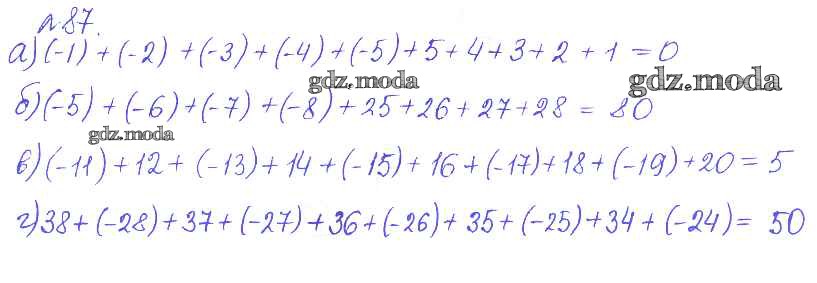 №87.
а) (-1) + (-2) + (-3) + (-4) + (-5) + 5 + 4 + 3 + 2 + 1 = 0
gdz.moda
gdz.moda
б) (-5) + (-6) + (-7) + (-8) + 25 + 26 + 27 + 28 = 80
gdz.moda
в) (-11) + 12 + (-13) + 14 + (-15) + 16 + (-17) + 18 + (-19) + 20 = 5
г) 38 + (-28) + 37 + (-27) + 36 + (-26) + 35 + (-25) + 34 + (-24) = 50